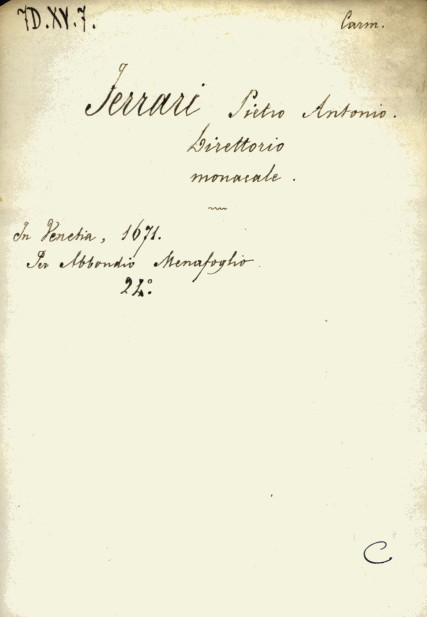 7D.XV.7.
Carm.
Ferrari Pietro Antonio.
Direttorio
monacale.
In Venetia, 1671.
Per Abbondio Menafoglio.
24°
C